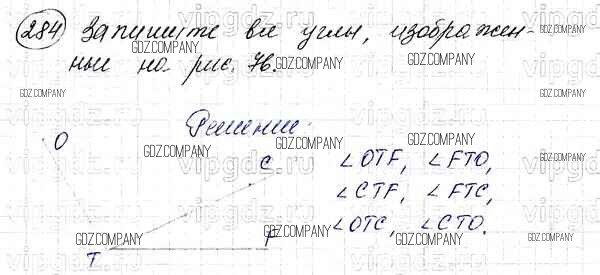 284 Запишите все углы, изображен-
ные на рис. 76.
Решение:
O
C
T
F
∠OTF, ∠FTO,
∠CTF, ∠FTC,
∠OTC, ∠CTO.
GDZ.COMPANY
vipgdz.ru